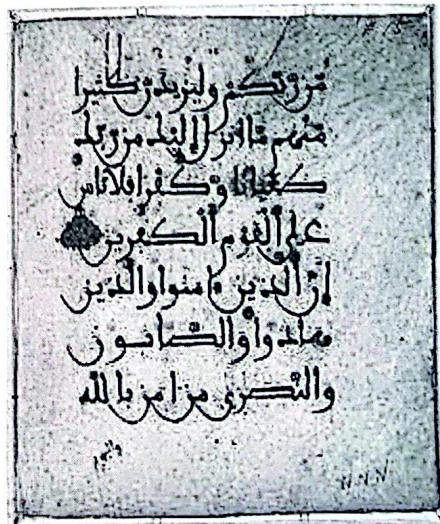 من ربكم وليزيدن كثيرا
منهم ما أنزل إليك من ربك
طغيانا وكفرا فلا تاس
على ٱلقوم ٱلكفرين
إن ٱلذين ءامنوا والذين
هادوا والصابون
والنصرى من امن بالله
واليوم